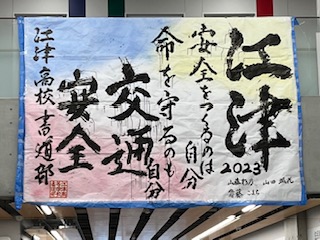 江津
2023
安全をつくるのは
自分
命を守るのも
自分
交通
安全
江津高校書道部